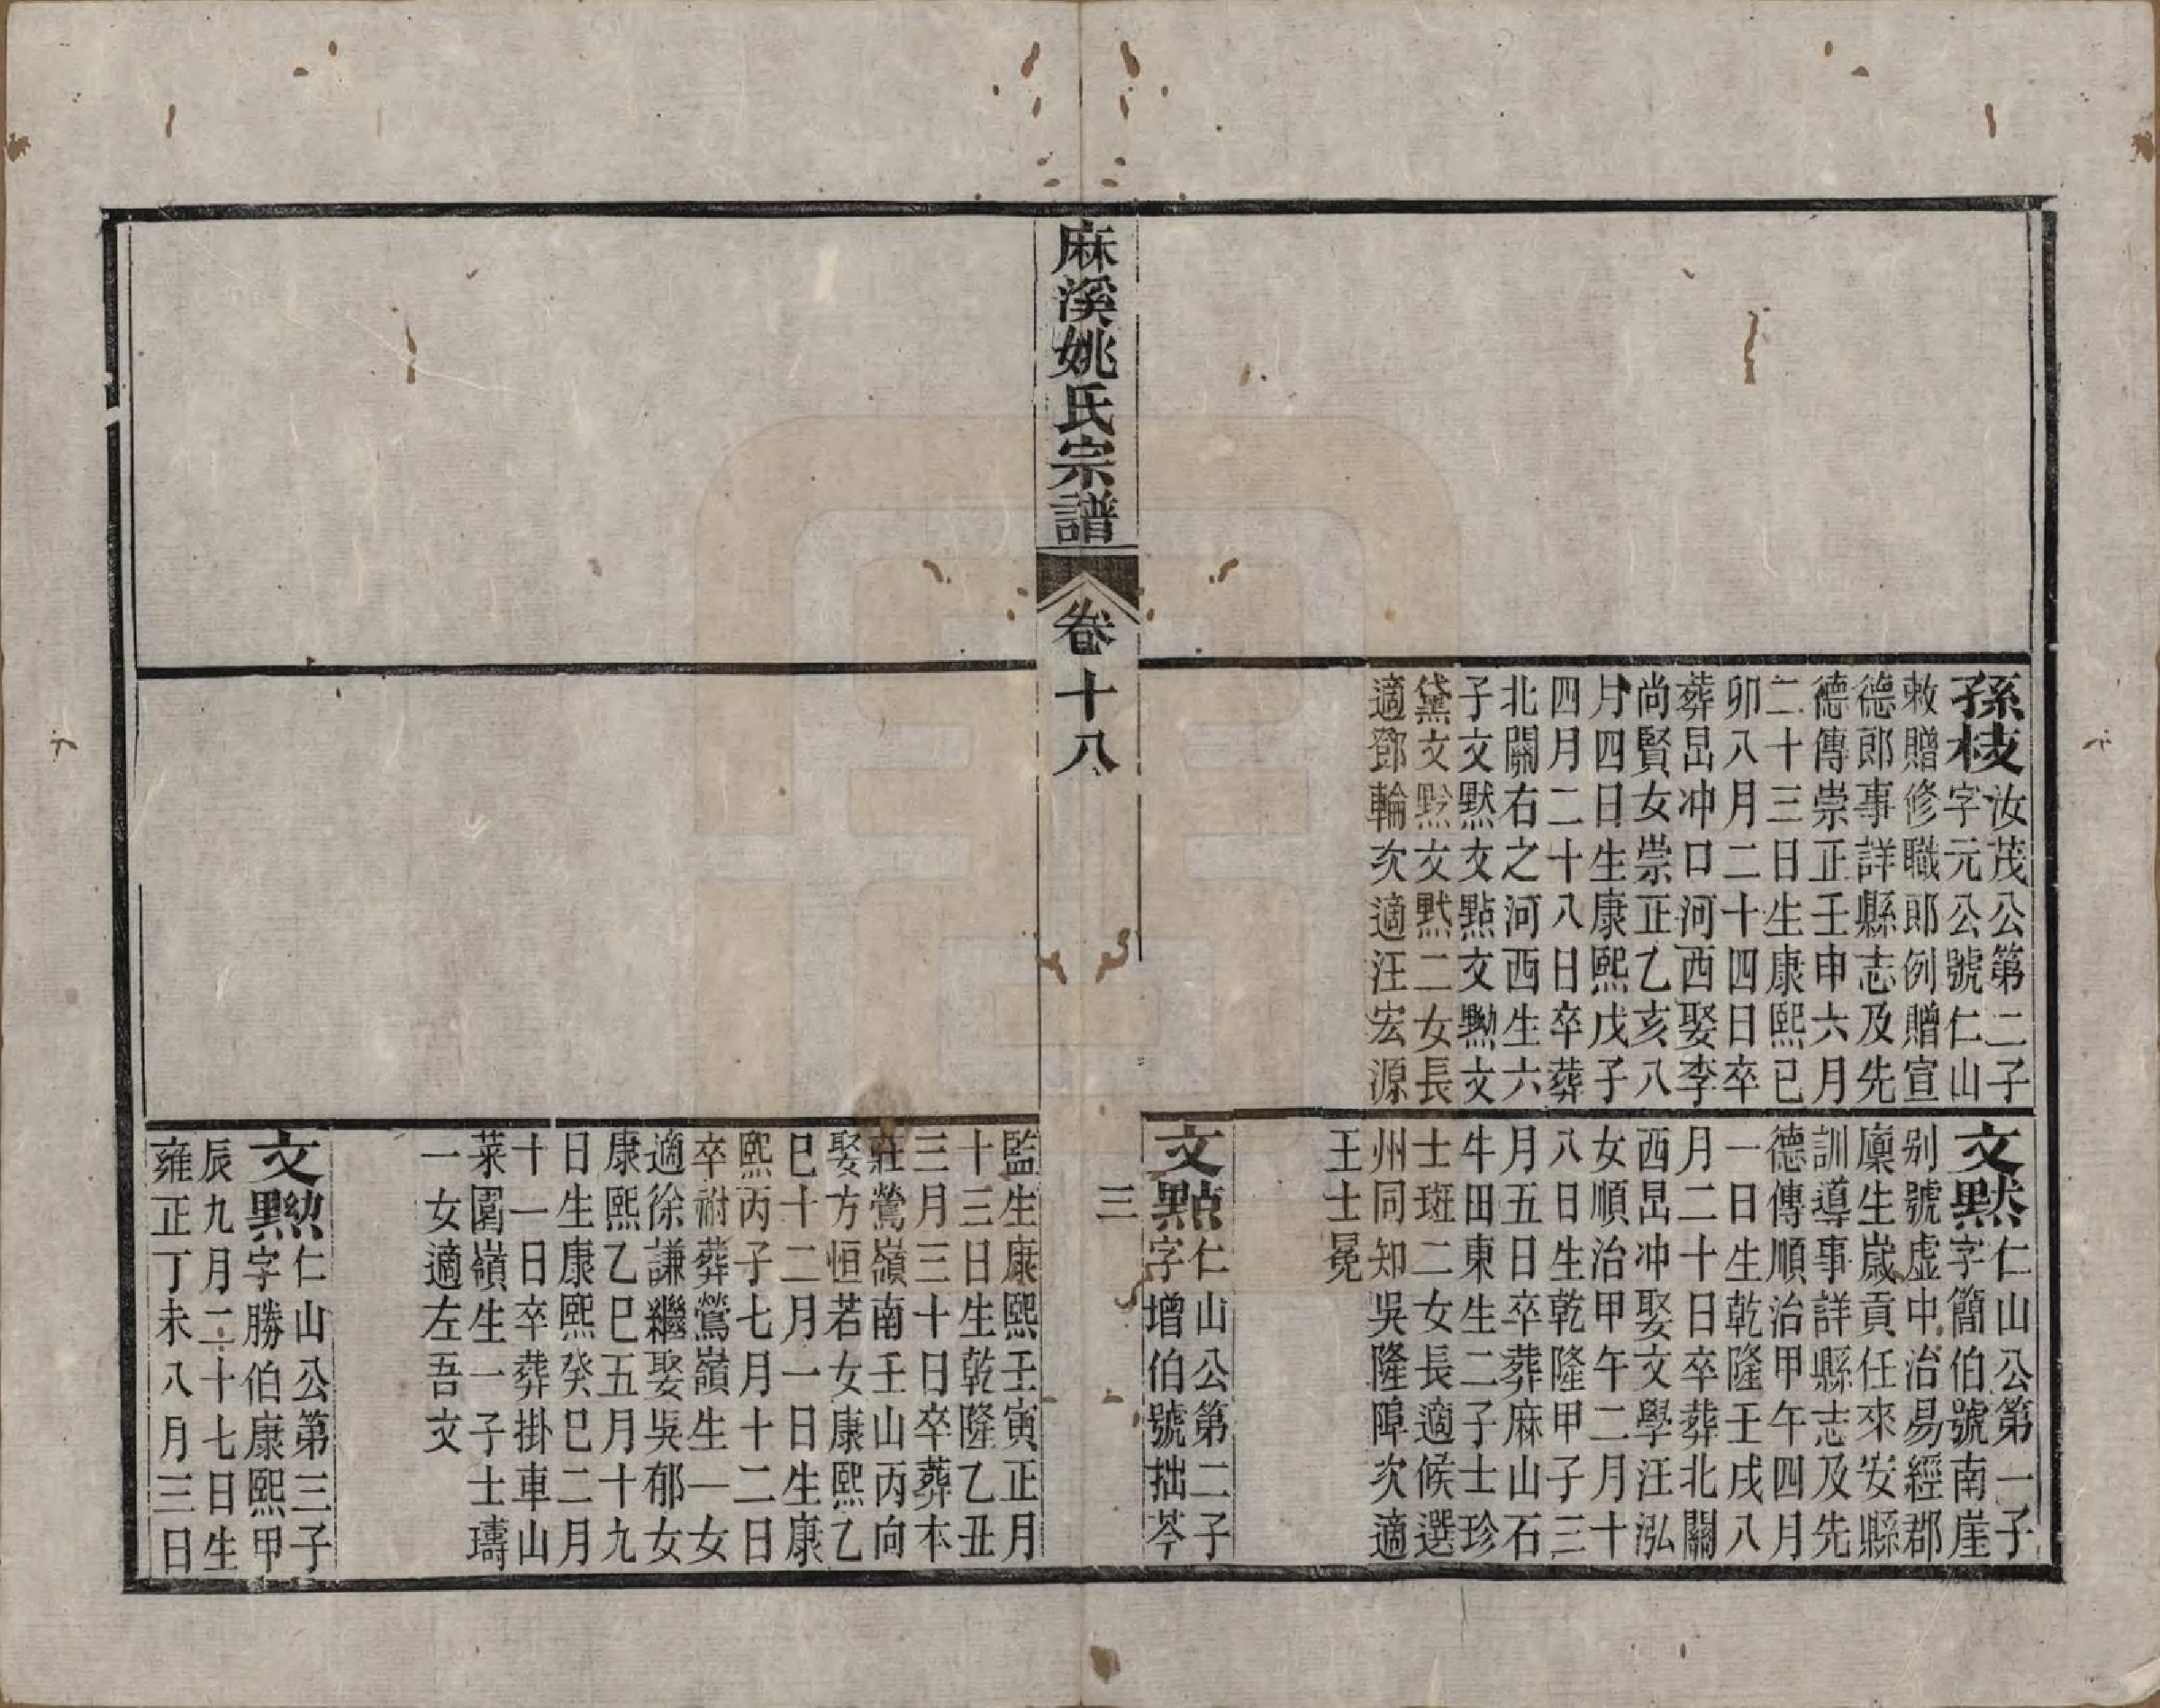 孫枝
汝茂公第二子
字元公號仁山
敕贈修職郎例贈宣
德郎事詳縣志及先
德傳崇正壬申六月
二十三日生康熙已
卯八月二十四日卒
葬昷冲口河西娶李
尚賢女崇正乙亥八
月四日生康熙戊子
四月二十八日卒葬
北關右之河西生六
子文默文點文黝文
黛文黙二女長
適鄧輪次適汪宏源
文默
仁山公第一子
字簡伯號南崖
别號虛中治易經郡
廩生歲貢任來安縣
訓導事詳縣志及先
德傳順治甲午四月
一日生乾隆壬戌八
月二十日卒葬北關
西昷冲娶文學汪泓
女順治甲午二月十
八日生乾隆甲子三
月五日卒葬麻山石
牛田東生二子士珍
士斑二女長適候選
州同知吳隆障次適
王士冕
文點
仁山公第二子
字增伯號拙苓
麻溪姚氏宗譜
卷十八
三
監生康熙壬寅正月
十三日生乾隆乙丑
三月三十日卒葬本
莊鶯嶺南壬山丙向
娶方恒若女康熙乙
巳十二月一日生康
熙丙子七月十二日
卒祔葬鶯嶺生一女
適徐謙繼娶吳郁女
康熙乙巳五月十九
日生康熙癸巳二月
十一日卒葬掛車山
菜園嶺生一子士璹
一女適左吾文
文黝
仁山公第三子
字勝伯康熙甲
辰九月二十七日生
雍正丁未八月三日